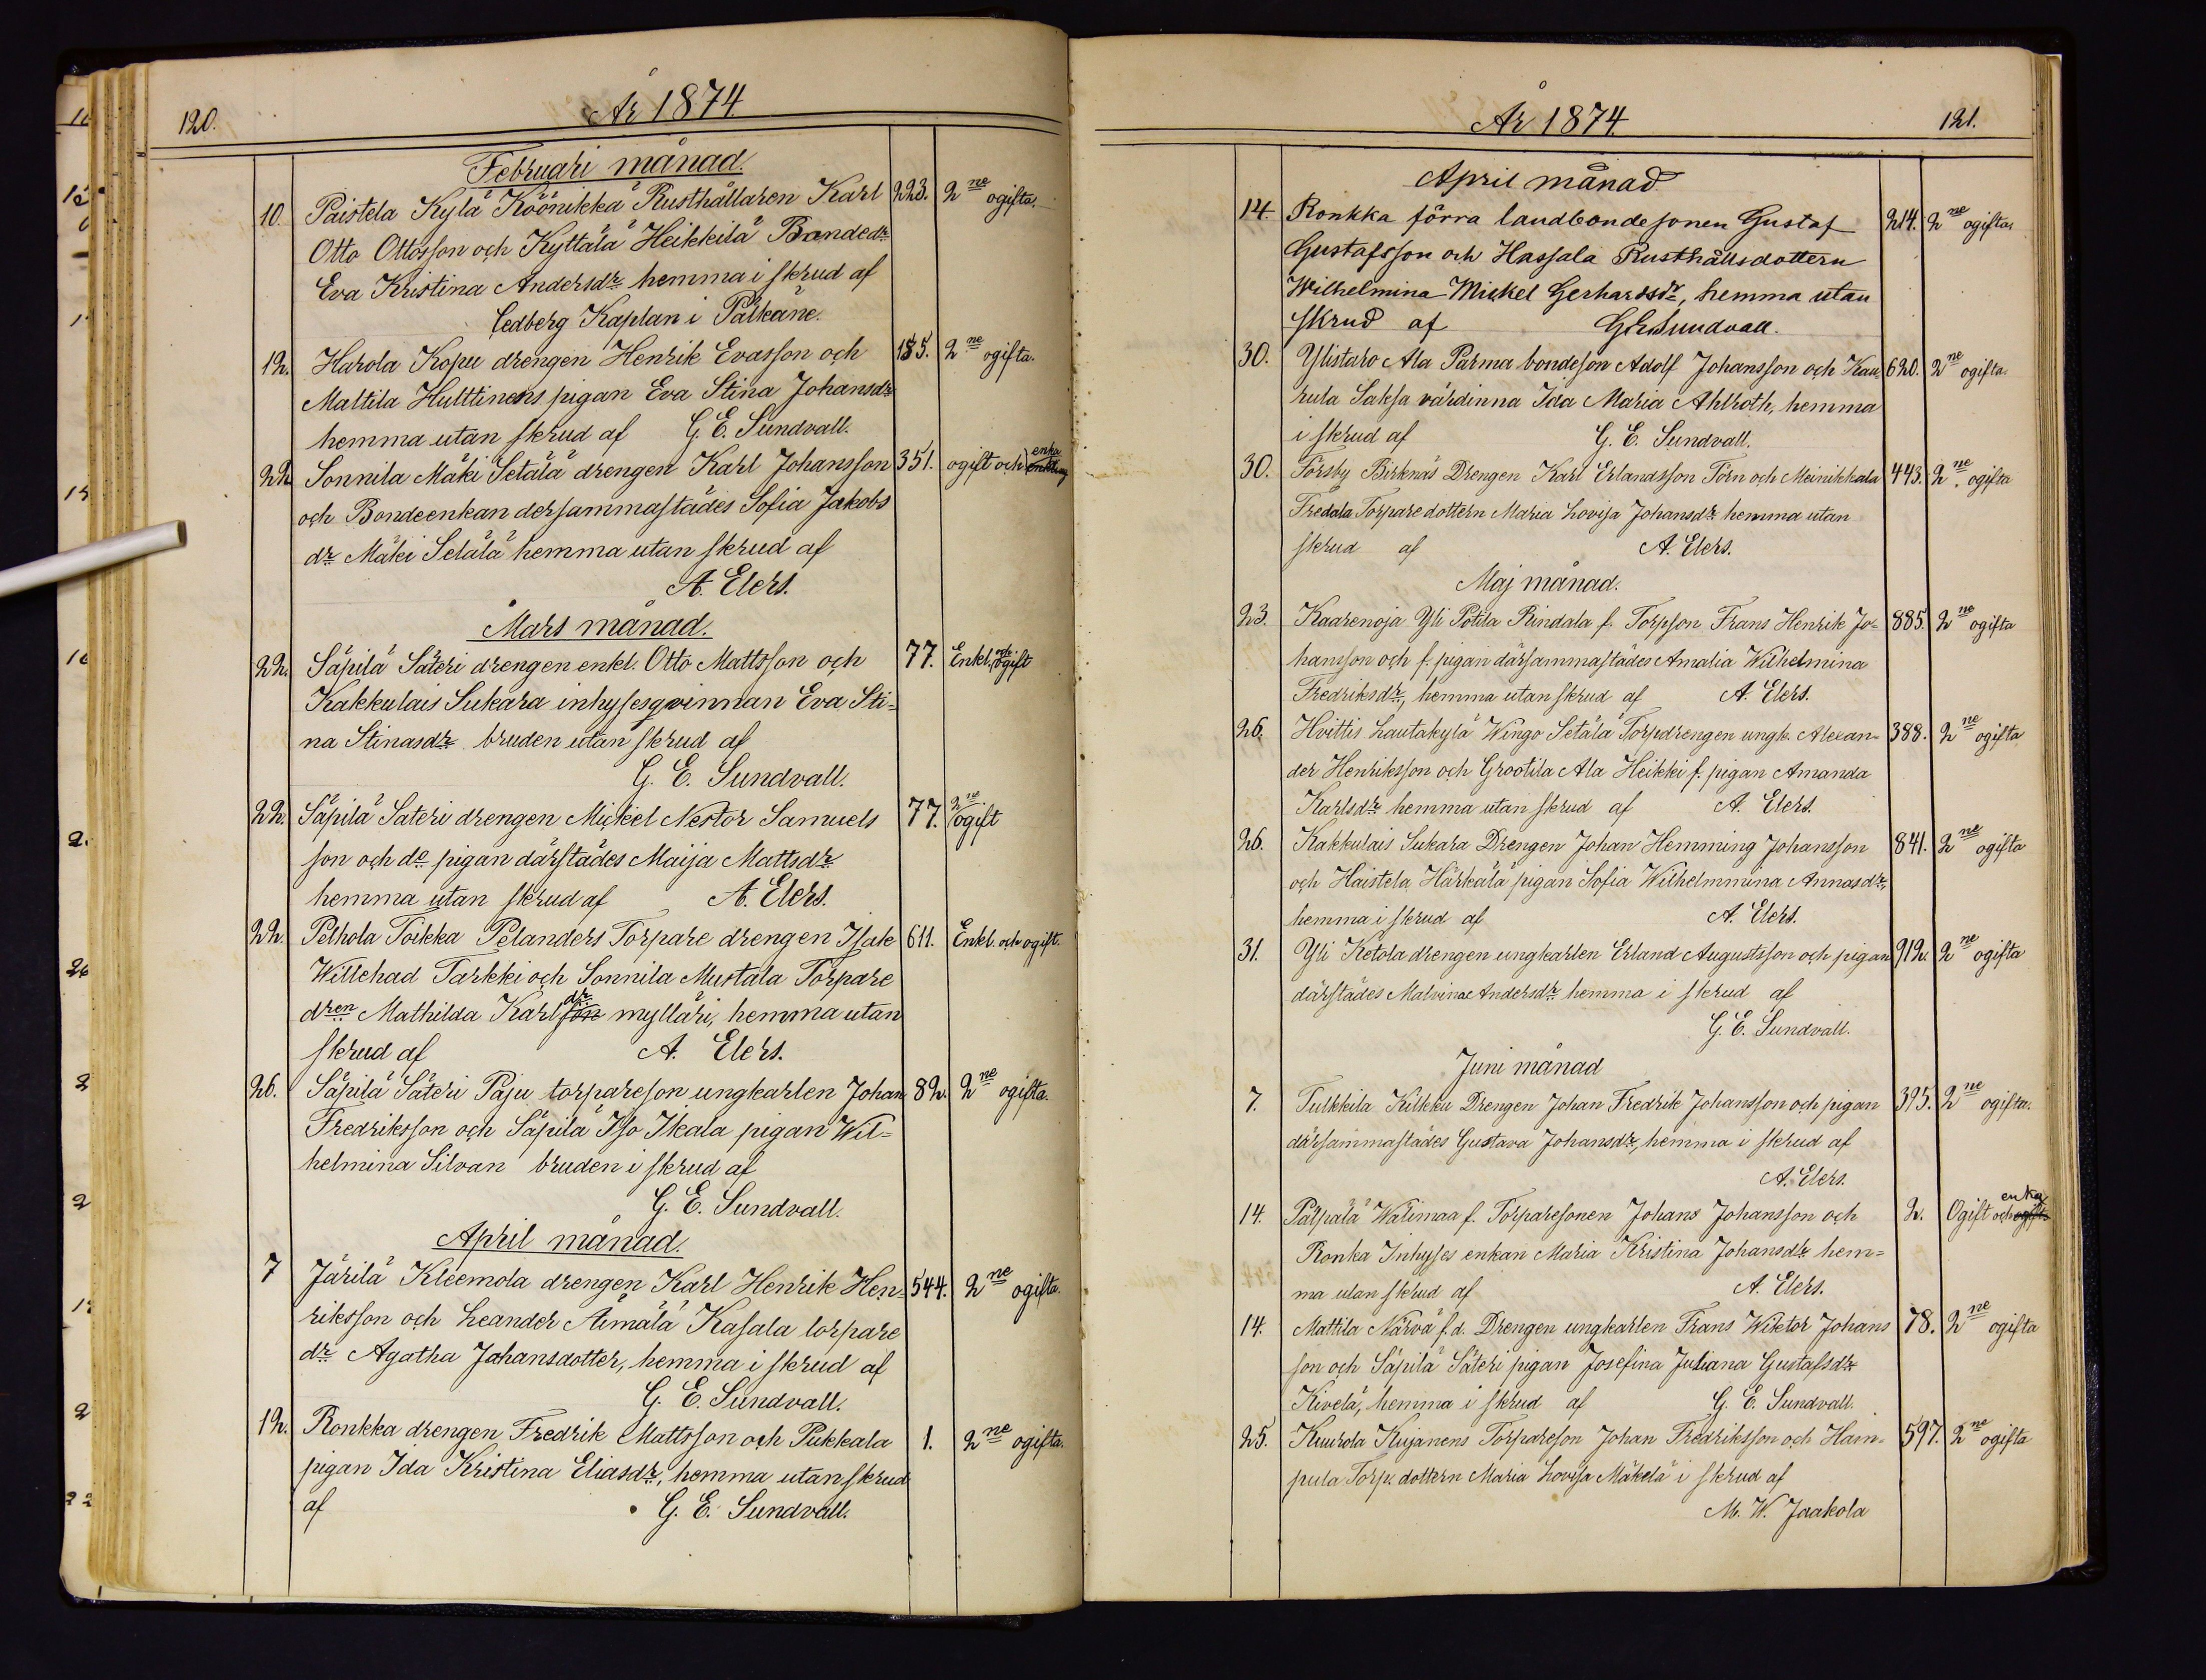 120.
År 1874
Februari månad.
10. Paistela Kylä Köönikkä Rusthållaren Karl 223. 2ne ogifta.
Otto Ottosson och Kyttälä Heikkilä Bondedr
Eva Kristina Andersdr hemma i skrud af
Cedberg Kaplan i Pälkäne.
12. Harola Kopu drengen Henrik Evasson och 185. 2ne ogifta.
Mattila Hulttinens pigan Eva Stina Johansdr
hemma utan skrud af G. E. Sundvall.
22 Sonnila Mäki Setälä drengen Karl Johansson 351. ogift och enka
och Bondeenkan dersammastädes Sofia Jakobs
dr Mäki Setälä hemma utan skrud af
A. Elers.
Mars månad.
22. Säpilä Säteri drengen enkl. Otto Mattsson och 77. Enkl. och ogift
Kakkulais Sukara inhysesqvinnan Eva Sti=
na Stinasdr bruden utan skrud af
G. E. Sundvall.
22. Säpilä Säteri drengen Mickel Nestor Samuels 77. 2ne ogift
son och de pigan därstädes Maija Mattsdr
hemma utan skrud af A. Elers.
22. Pelhola Toikka Pelanders Torpare drengen Isak 611. Enkl. och ogift.
Willehad Tarkki och Sonnila Mustala Torpare
dren Mathilda Karl dr mylläri, hemma utan
skrud af A. Elers.
26. Säpilä Säteri Paju torpareson ungkarlen Johan 82. 2ne ogifta.
Fredriksson och Säpilä Iso Ikala pigan Wil=
helmina Silvan bruden i skrud af
G. E. Sundvall.
April månad.
7 Järilä Kleemola drengen Karl Henrik Hen= 544. 2ne ogifta.
riksson och Leander Äimälä Kasala torpare
dr Agatha Johansdotter, hemma i skrud af
G. E. Sundvall.
12. Ronkka drengen Fredrik Mattsson och Pukkala 1. 2ne ogifta.
pigan Ida Kristina Eliasdr, hemma utan skrud
af G. E. Sundvall.
År 1874
121.
April månad
14. Ronkka förra landbondesonen Gustaf 214. 2ne ogifta.
Gustafsson och Hassala Rusthållsdottern
Wilhelmina Mickel Gerhardsdr, hemma utan
skrud af G E Sundvall.
30. Ylistaro Ala Parma bondeson Adolf Johansson och Kau= 620. 2ne ogifta.
rula Saksa värdinna Ida Maria Ahlroth, hemma
i skrud af G. E. Sundvall.
30. Försby Birknäs Drengen Karl Erlandsson Törn och Meinikkala 443. 2ne ogifta
Fredala Torparedottern Maria Lovisa Johansdr hemma utan
skrud af A. Elers.
Maj månad.
23. Kaarenoja Yli Potila Rindala f. Torpson Frans Henrik Jo= 885. 2ne ogifta
hansson och f. pigan därsammastädes Amalia Wilhelmina
Fredriksdr, hemma utan skrud af A. Elers.
26. Hvittis Lautakylä Wingo Setälä Torpdrengen ungk. Alexan= 388. 2ne ogifta
der Henriksson och Grootila Ala Heikki f. pigan Amanda
Karlsdr hemma utan skrud af A. Elers.
26. Kakkulais Sukara Drengen Johan Hemming Johansson 841. 2ne ogifta
och Haistela Härkälä pigan Sofia Wilhelmmina Annasdr,
hemma i skrud af A. Elers.
31. Yli Ketola drengen ungkarlen Erland Augustsson och pigan 912. 2ne ogifta
därstädes Malvina Andersdr hemma i skrud af
G. E. Sundvall.
Juni månad
7. Tulkkila Kilkku Drengen Johan Fredrik Johansson och pigan 395. 2ne ogifta.
därsammastädes Gustava Johansdr, hemma i skrud af
A. Elers.
14. Pälpälä Warimaa f. Torparesonen Johans Johansson och 2. Ogift och enka
Ronka Inhyses enkan Maria Kristina Johansdr hem=
ma utan skrud af A. Elers.
14. Mattila Närvä f.d. Drengen ungkarlen Frans Wiktor Johans 78. 2ne ogifta
son och Säpilä Säteri pigan Josefina Juliana Gustafsdr
Kivelä, hemma i skrud af G. E. Sundvall.
25. Kuurola Kujanens Torpareson Johan Fredriksson och Ham= 597. 2ne ogifta
pula Torp. dottern Maria Lovisa Mäkelä i skrud af
M. W. Jaakola